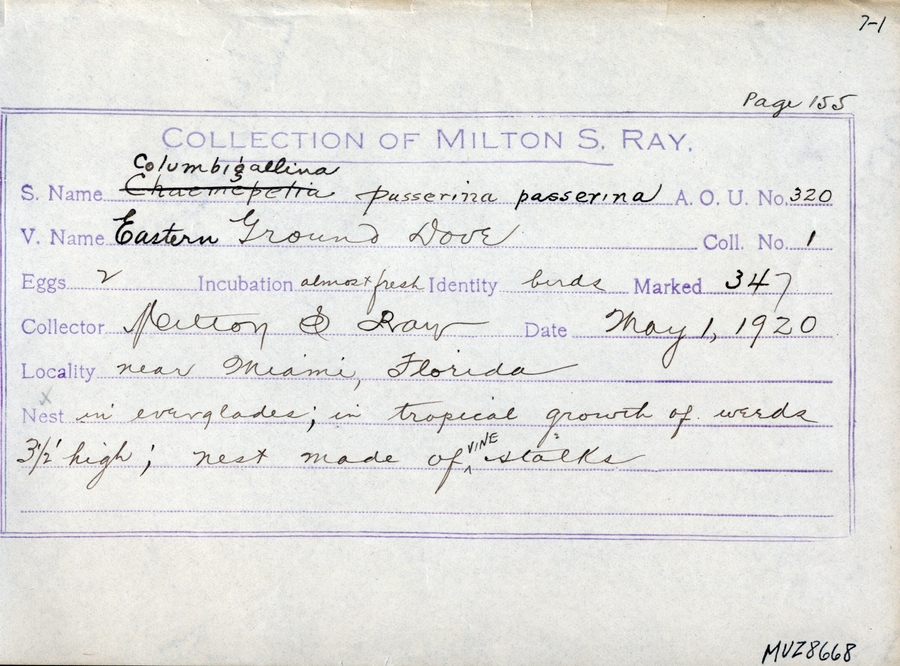 7-1
Page 155
COLLECTION OF MILTON S. RAY.
Columbigallina
S. Name Chaemepelia passerina passerina A. O. U. No. 320
V. Name Eastern Ground Dove Coll. No. 1
Eggs 2 Incubation almost fresh Identity birds Marked 347
Collector Milton S Ray Date May 1, 1920
Locality near Miami, Florida
x
Nest in everglades; in tropical growth of weeds
VINE
3½' high; nest made of ^ stalks
MVZ8668